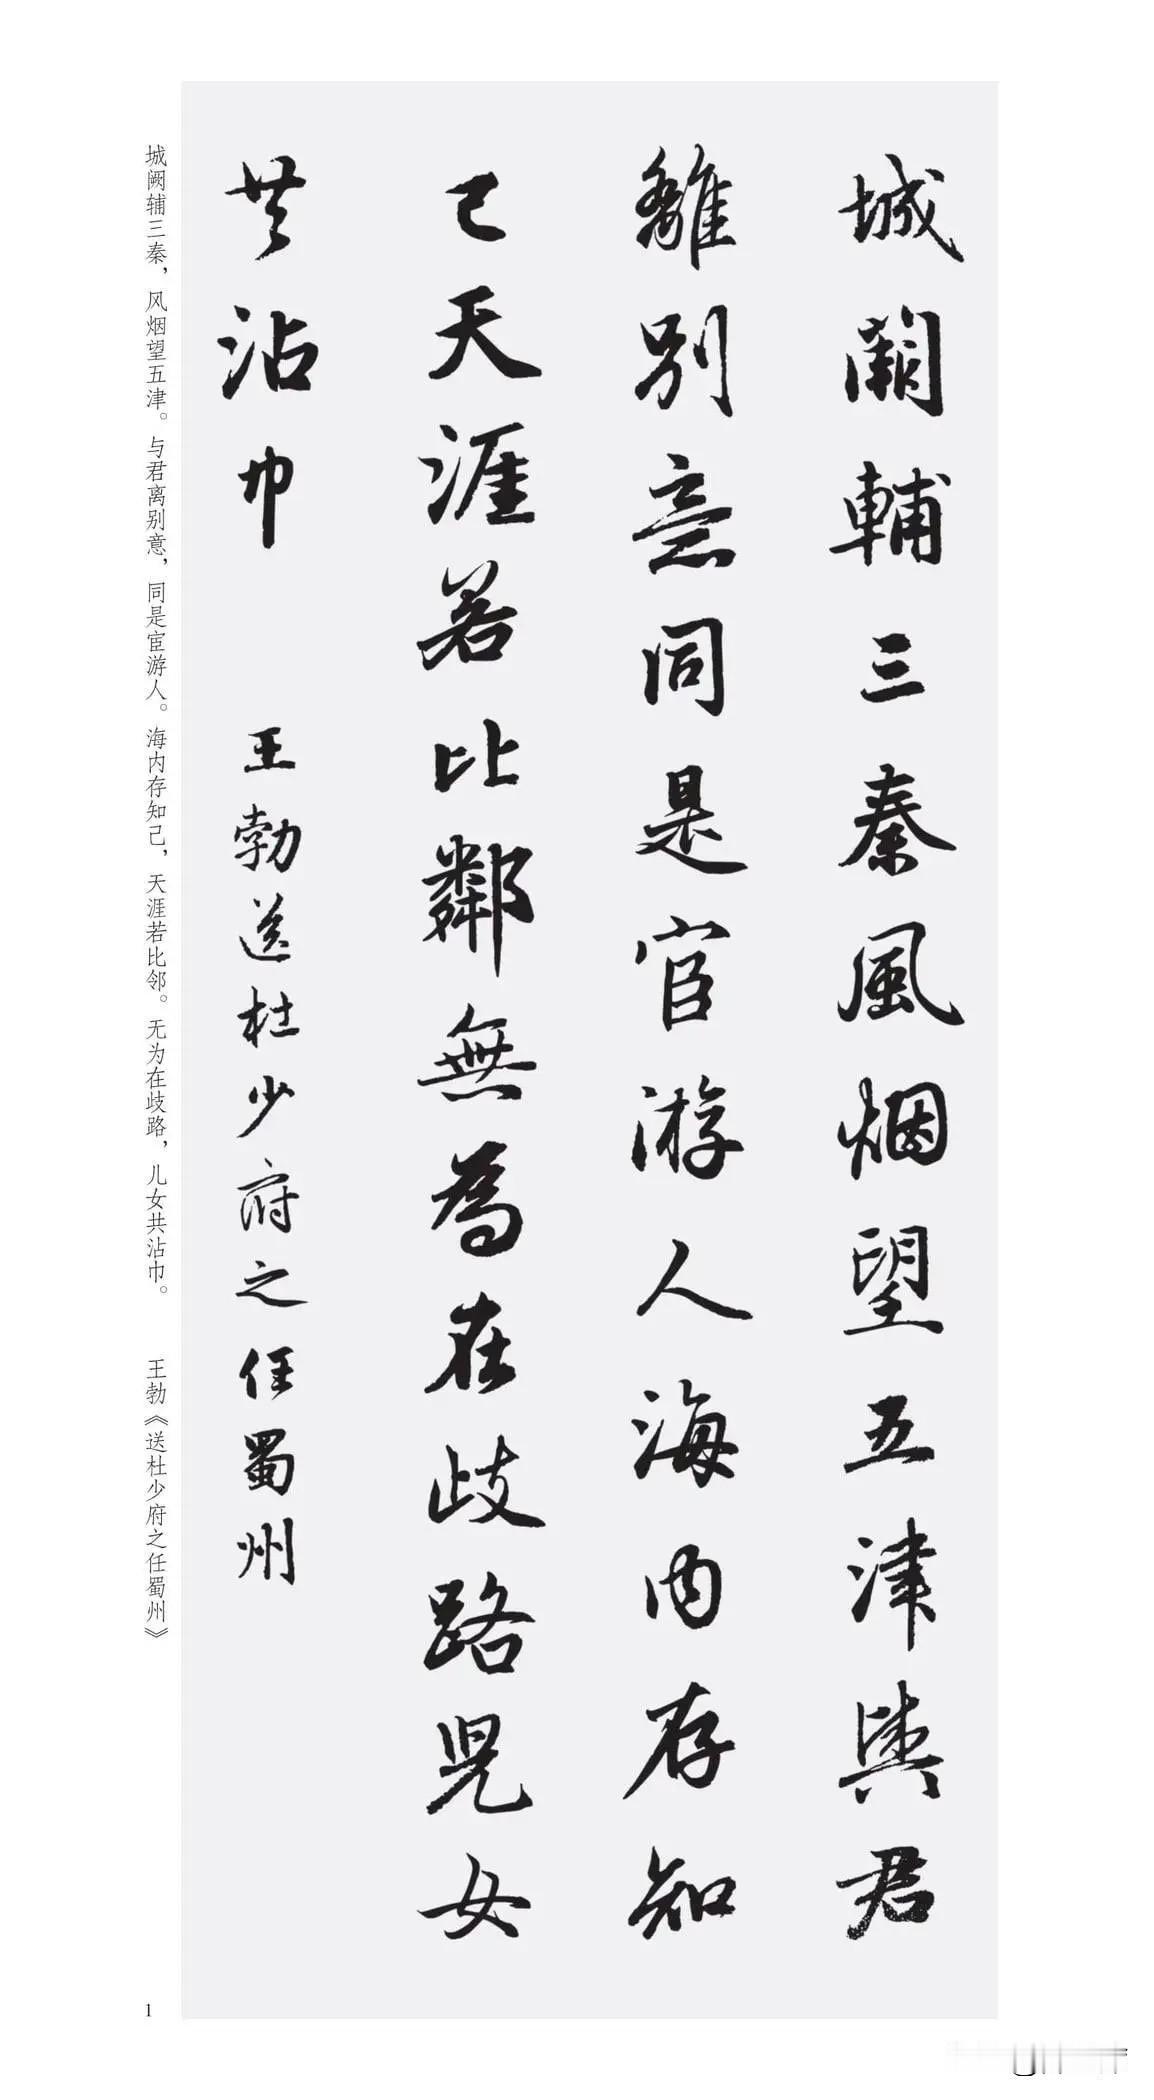 城闕輔三秦風烟望五津與君
離别意同是宦游人海内存知
己天涯若比鄰無為在歧路児女
共沾巾
王勃送杜少府之任蜀州
城阙辅三秦，风烟望五津。与君离别意，同是宦游人。海内存知己，天涯若比邻。无为在歧路，儿女共沾巾。 王勃《送杜少府之任蜀州》
1